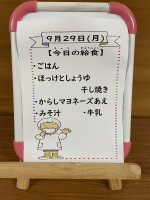 9月29日(月)
【今日の給食】
・ごはん
・ほっけとしょうゆ
干し焼き
・からしマヨネーズあえ
・みそ汁 ・牛乳